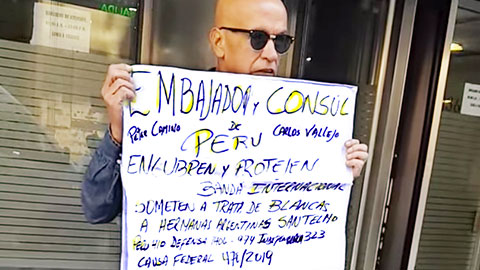 EMBAJADOR y CONSÚL
PETER CAMINO DE CARLOS VALLEJO
PERU
ENCUBREN y PROTEJEN
BANDA INTERNACIONAL
SOMETEN A TRATA DE BLANCAS
A HERMANAS ARGENTINAS SANTELMO
PERU 410 DEFENSA 1402 - 974 INDEPENDENCIA 323
CAUSA FEDERAL 474/2019